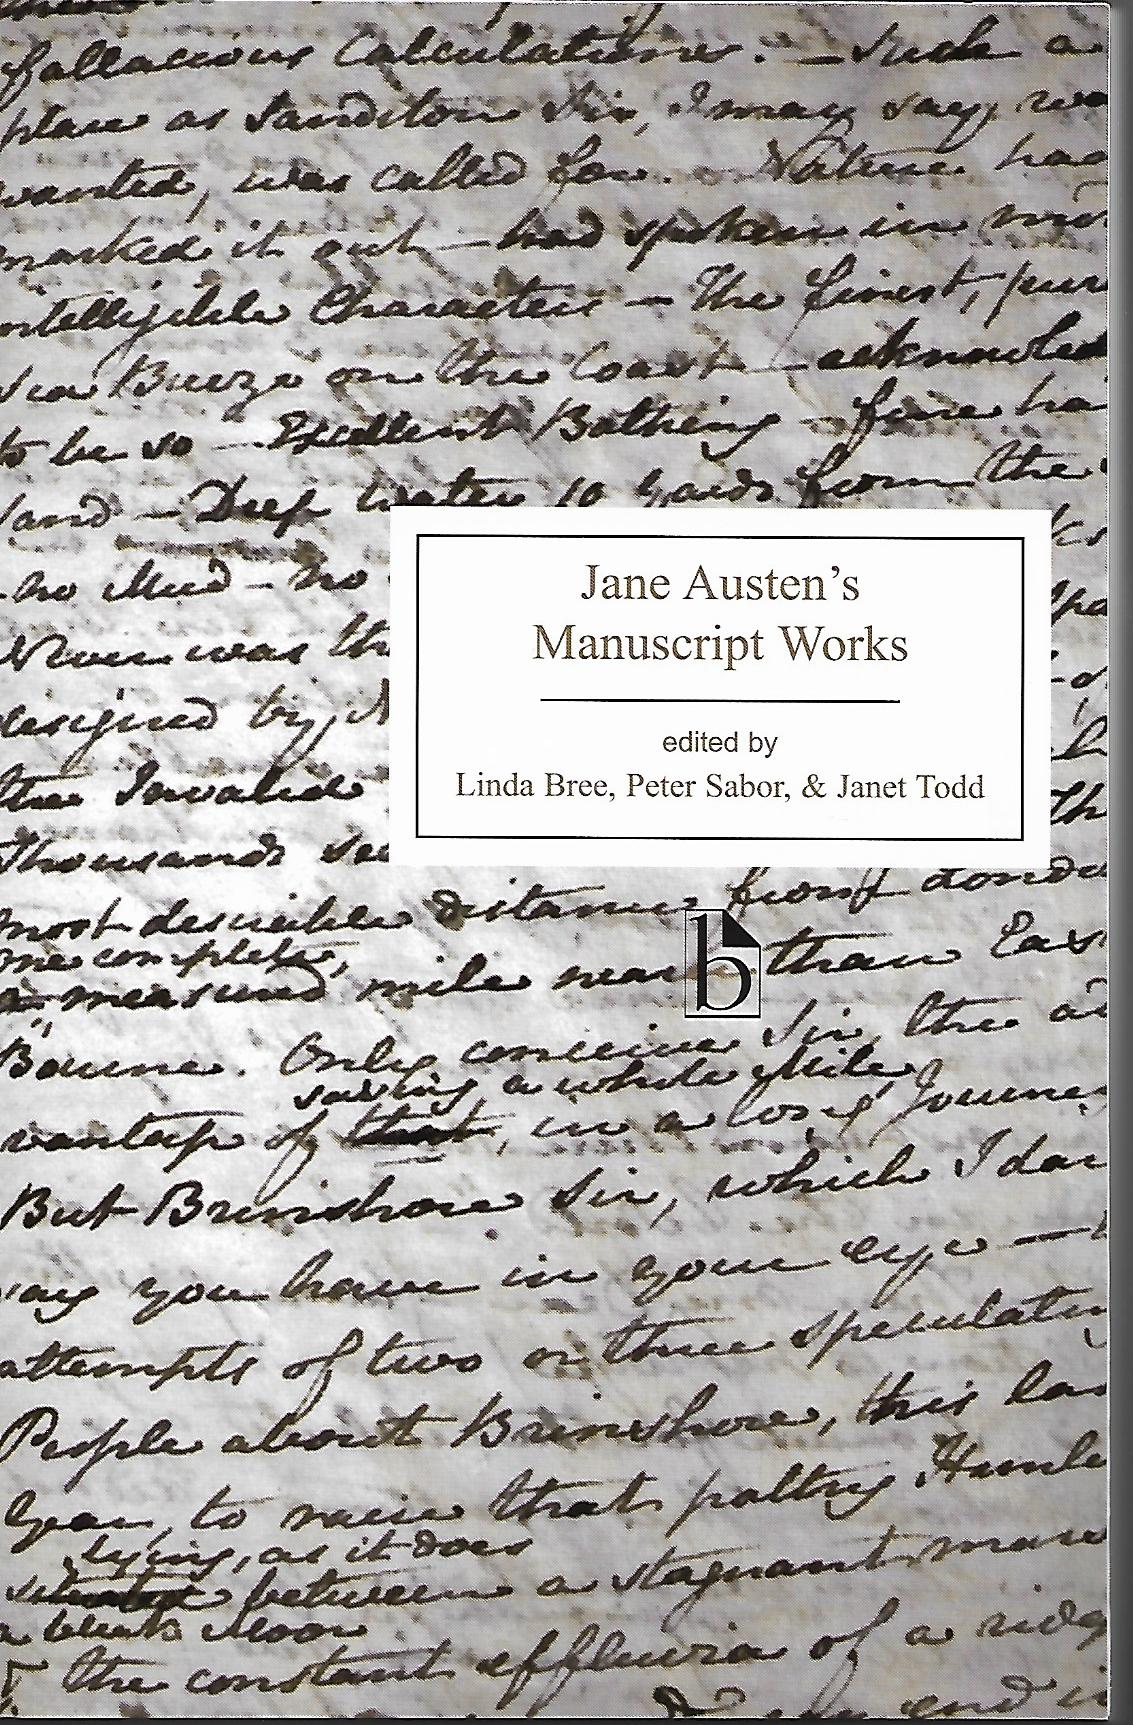 fallacious Calculations. — Such a
place as Sanditon Sir, I may say, wa
wanted, was called for. — Nature had
marked it out — had spoken in mo
ntelligible Characters — The finest, pur
Sea Breeze on the Coast — acknowled
to be so — Excellent Bathing — fine ha
Sand — Deep Water 10 Yards from the
no Mud — no
River was th
designed by N
the Invalid
Thousands see
most desirable distance from Londo
one complete,
a measured mile nearer than East
Bourne. Only conceive Sir, the ad
saving a whole Mile,
vantage of that, in a long Journe
But Brinshore Sir, which I dar
say you have in your eye —
attempts of two or three speculatin
People about Brinshore, this las
Year, to raise that paltry Hamle
lying, as it does
situated between a stagnant mars
a bleak Moor
& the constant effluvia of a ridg
Jane Austen's
Manuscript Works
edited by
Linda Bree, Peter Sabor, & Janet Todd
b